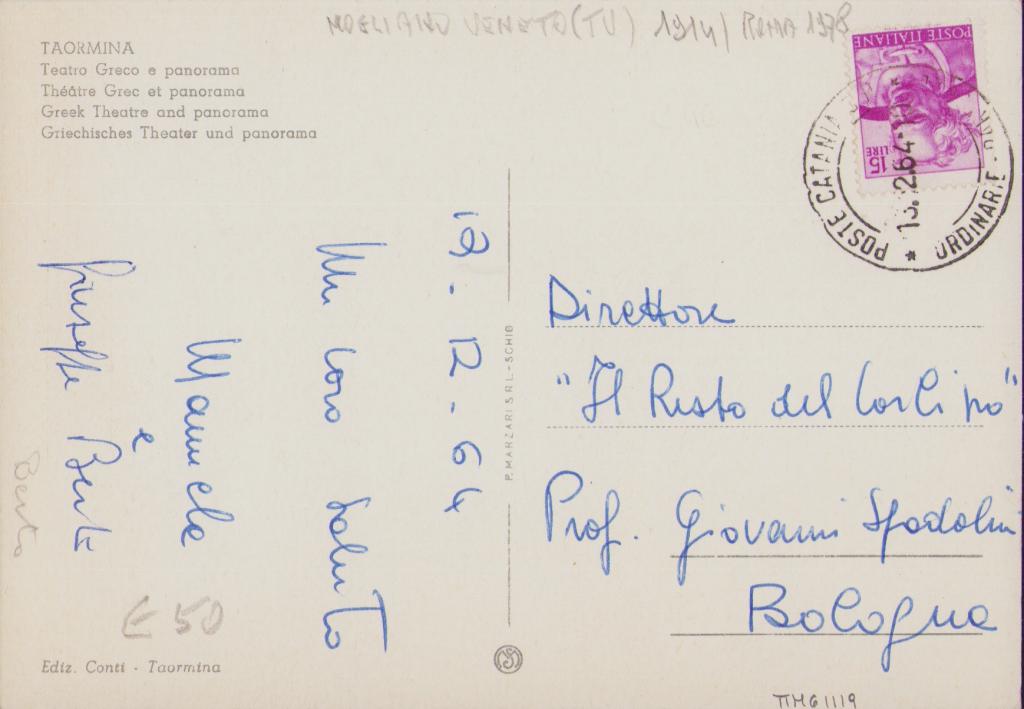 MOGLIANO VENETO (TV) 1914 / ROMA 1978
TAORMINA
Teatro Greco e panorama
Théâtre Grec et panorama
Greek Theatre and panorama
Griechisches Theater und panorama
POSTE ITALIANE
15 LIRE
POSTE CATANIA
ORDINARIE
12.64
12.64
Un caro saluto
Manuela
e
Giuseppe Berto
Berto
€ 50
Ediz. Conti - Taormina
P. MARZARI S.R.L. - SCHIO
Direttore
"Il Resto del Carlino"
Prof. Giovanni Spadolini
Bologna
TTMG1119